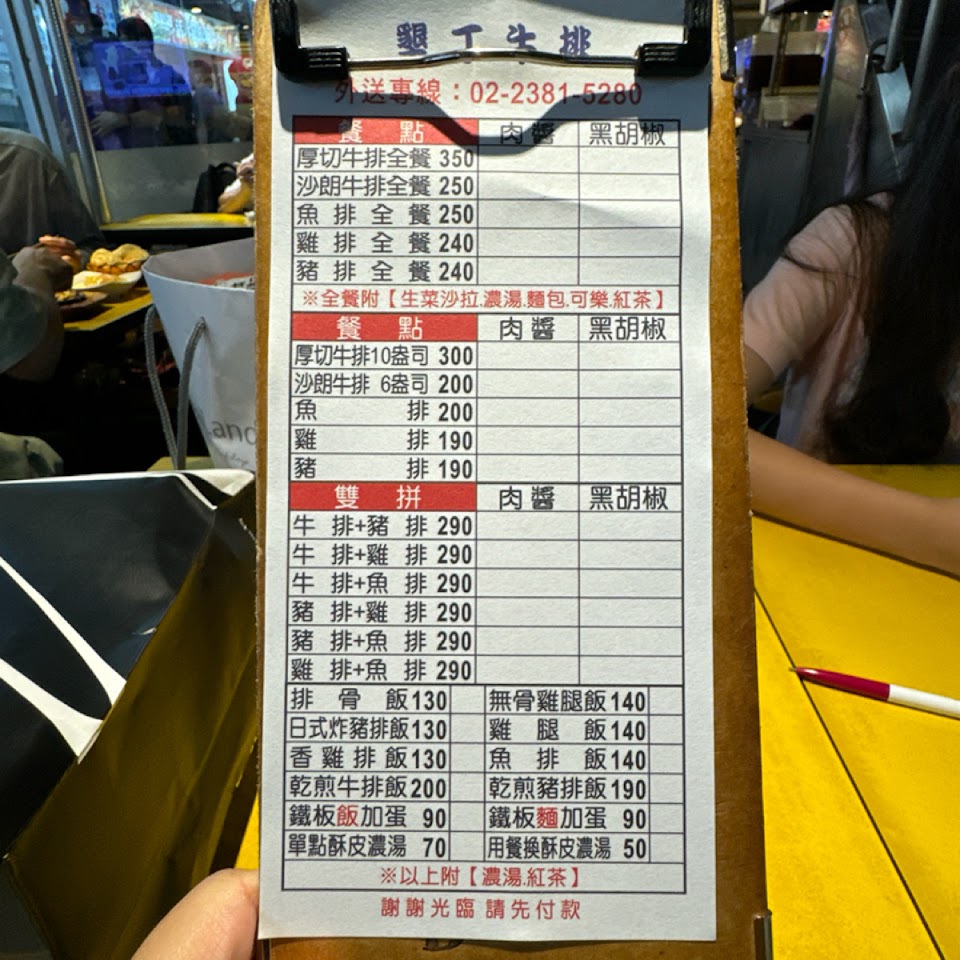 墾丁牛排
外送專線：02-2381-5280
餐點 肉醬 黑胡椒
厚切牛排全餐 350
沙朗牛排全餐 250
魚排全餐 250
雞排全餐 240
豬排全餐 240
※全餐附【生菜沙拉.濃湯.麵包.可樂.紅茶】
餐點 肉醬 黑胡椒
厚切牛排10盎司 300
沙朗牛排 6盎司 200
魚排 200
雞排 190
豬排 190
雙拼 肉醬 黑胡椒
牛排+豬排 290
牛排+雞排 290
牛排+魚排 290
豬排+雞排 290
豬排+魚排 290
雞排+魚排 290
排骨飯 130 無骨雞腿飯 140
日式炸豬排飯 130 雞腿飯 140
香雞排飯 130 魚排飯 140
乾煎牛排飯 200 乾煎豬排飯 190
鐵板飯加蛋 90 鐵板麵加蛋 90
單點酥皮濃湯 70 用餐換酥皮濃湯 50
※以上附【濃湯.紅茶】
謝謝光臨 請先付款